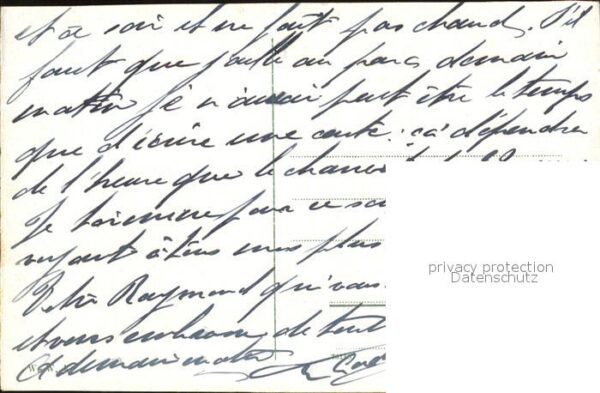 et ce soir il ne fait pas chaud. S'il
faut que j'aille au parc demain
matin je n'aurai peut être le temps
que d'écrire une carte : ça dépendra
de l'heure que le
Je termine pour ce
à tous mes plus
Votre Raymond qui vous
et vous embrasse de tout
A demain matin
privacy protection
Datenschutz